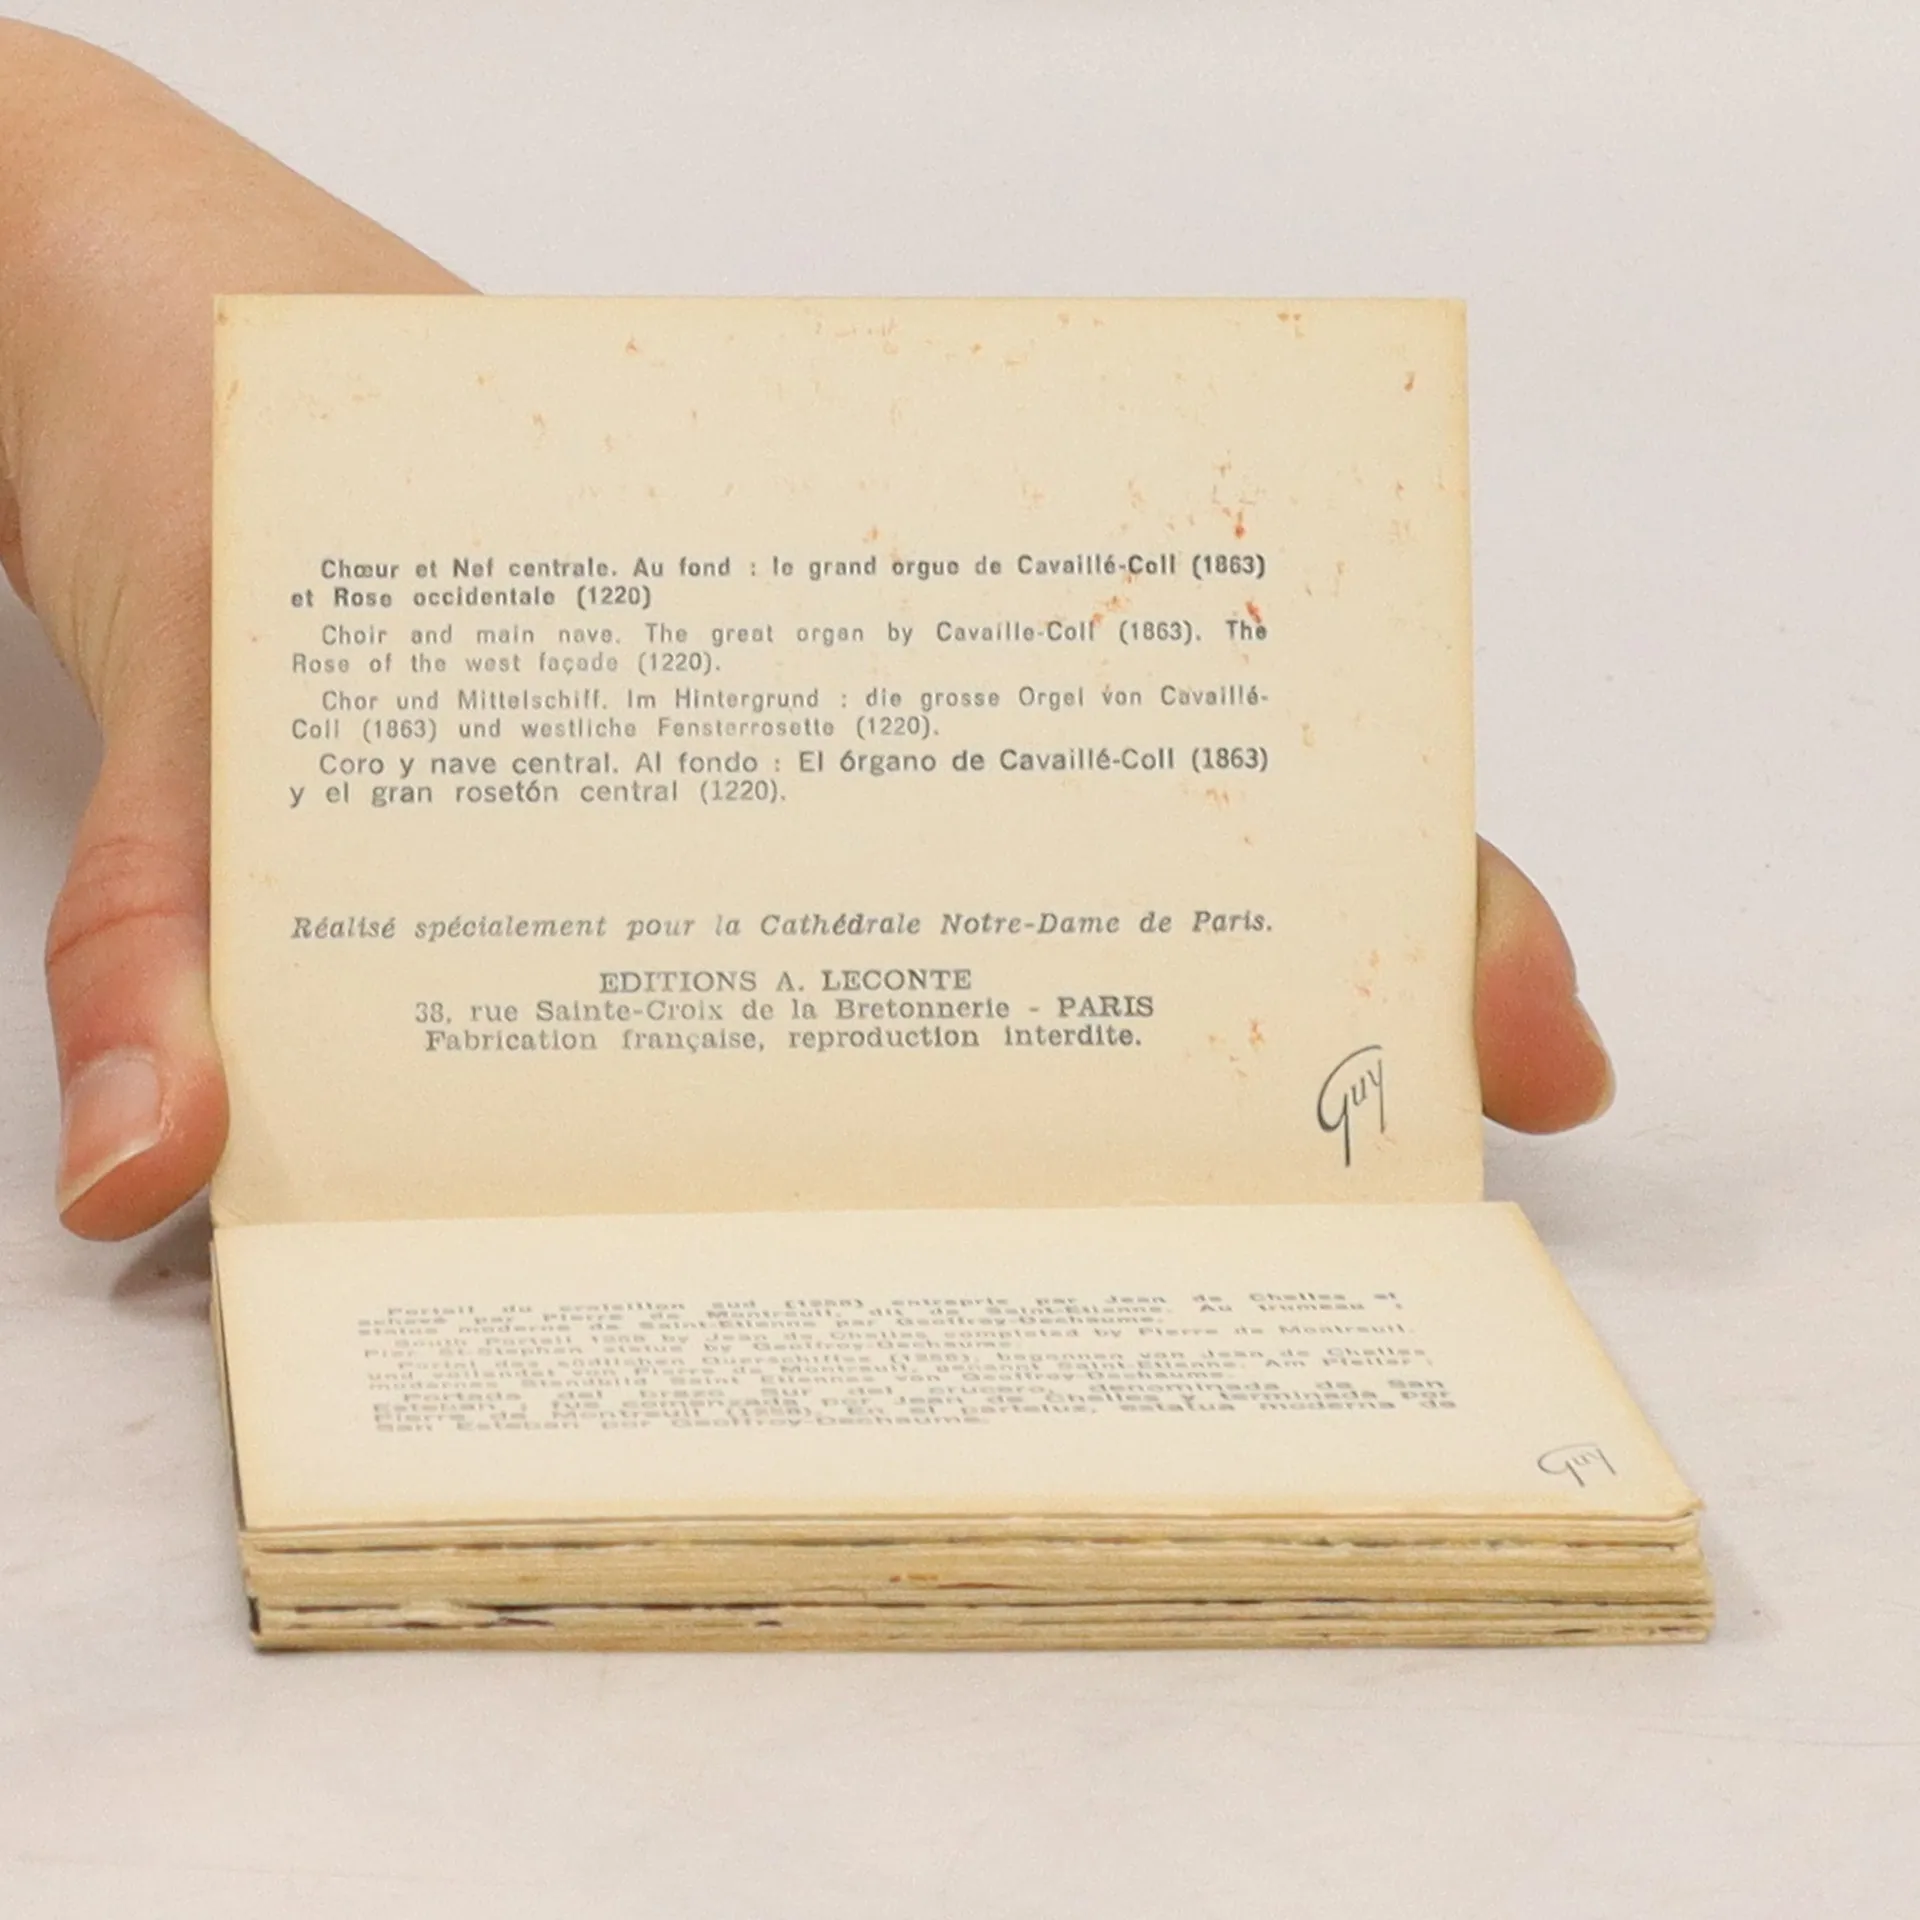 Chœur et Nef centrale. Au fond : le grand orgue de Cavaillé-Coll (1863)
et Rose occidentale (1220)
Choir and main nave. The great organ by Cavaille-Coll (1863). The
Rose of the west façade (1220).
Chor und Mittelschiff. Im Hintergrund : die grosse Orgel von Cavaillé-
Coll (1863) und westliche Fensterrosette (1220).
Coro y nave central. Al fondo : El órgano de Cavaillé-Coll (1863)
y el gran rosetón central (1220).
Réalisé spécialement pour la Cathédrale Notre-Dame de Paris.
EDITIONS A. LECONTE
38, rue Sainte-Croix de la Bretonnerie - PARIS
Fabrication française, reproduction interdite.
Guy
Portail du croisillon sud (1258) entrepris par Jean de Chelles et
achevé par Pierre de Montreuil, dit de Saint-Etienne. Au trumeau :
statue moderne de Saint-Etienne par Geoffroy-Dechaume.
South Portail 1258 by Jean de Chelles completed by Pierre de Montreuil.
Pier St-Stephen statue by Geoffroy-Dechaume.
Portal des südlichen Querschiffes (1258), begonnen von Jean de Chelles
und vollendet von Pierre de Montreuil, genannt Saint-Etienne. Am Pfeiler :
modernes Standbild Saint Etiennes von Geoffroy-Dechaume.
Portada del brazo Sur del crucero, denominada de San
Esteban ; fue comenzada por Jean de Chelles y terminada por
Pierre de Montreuil (1258). En el parteluz, estatua moderna de
San Esteban por Geoffroy-Dechaume.
Guy